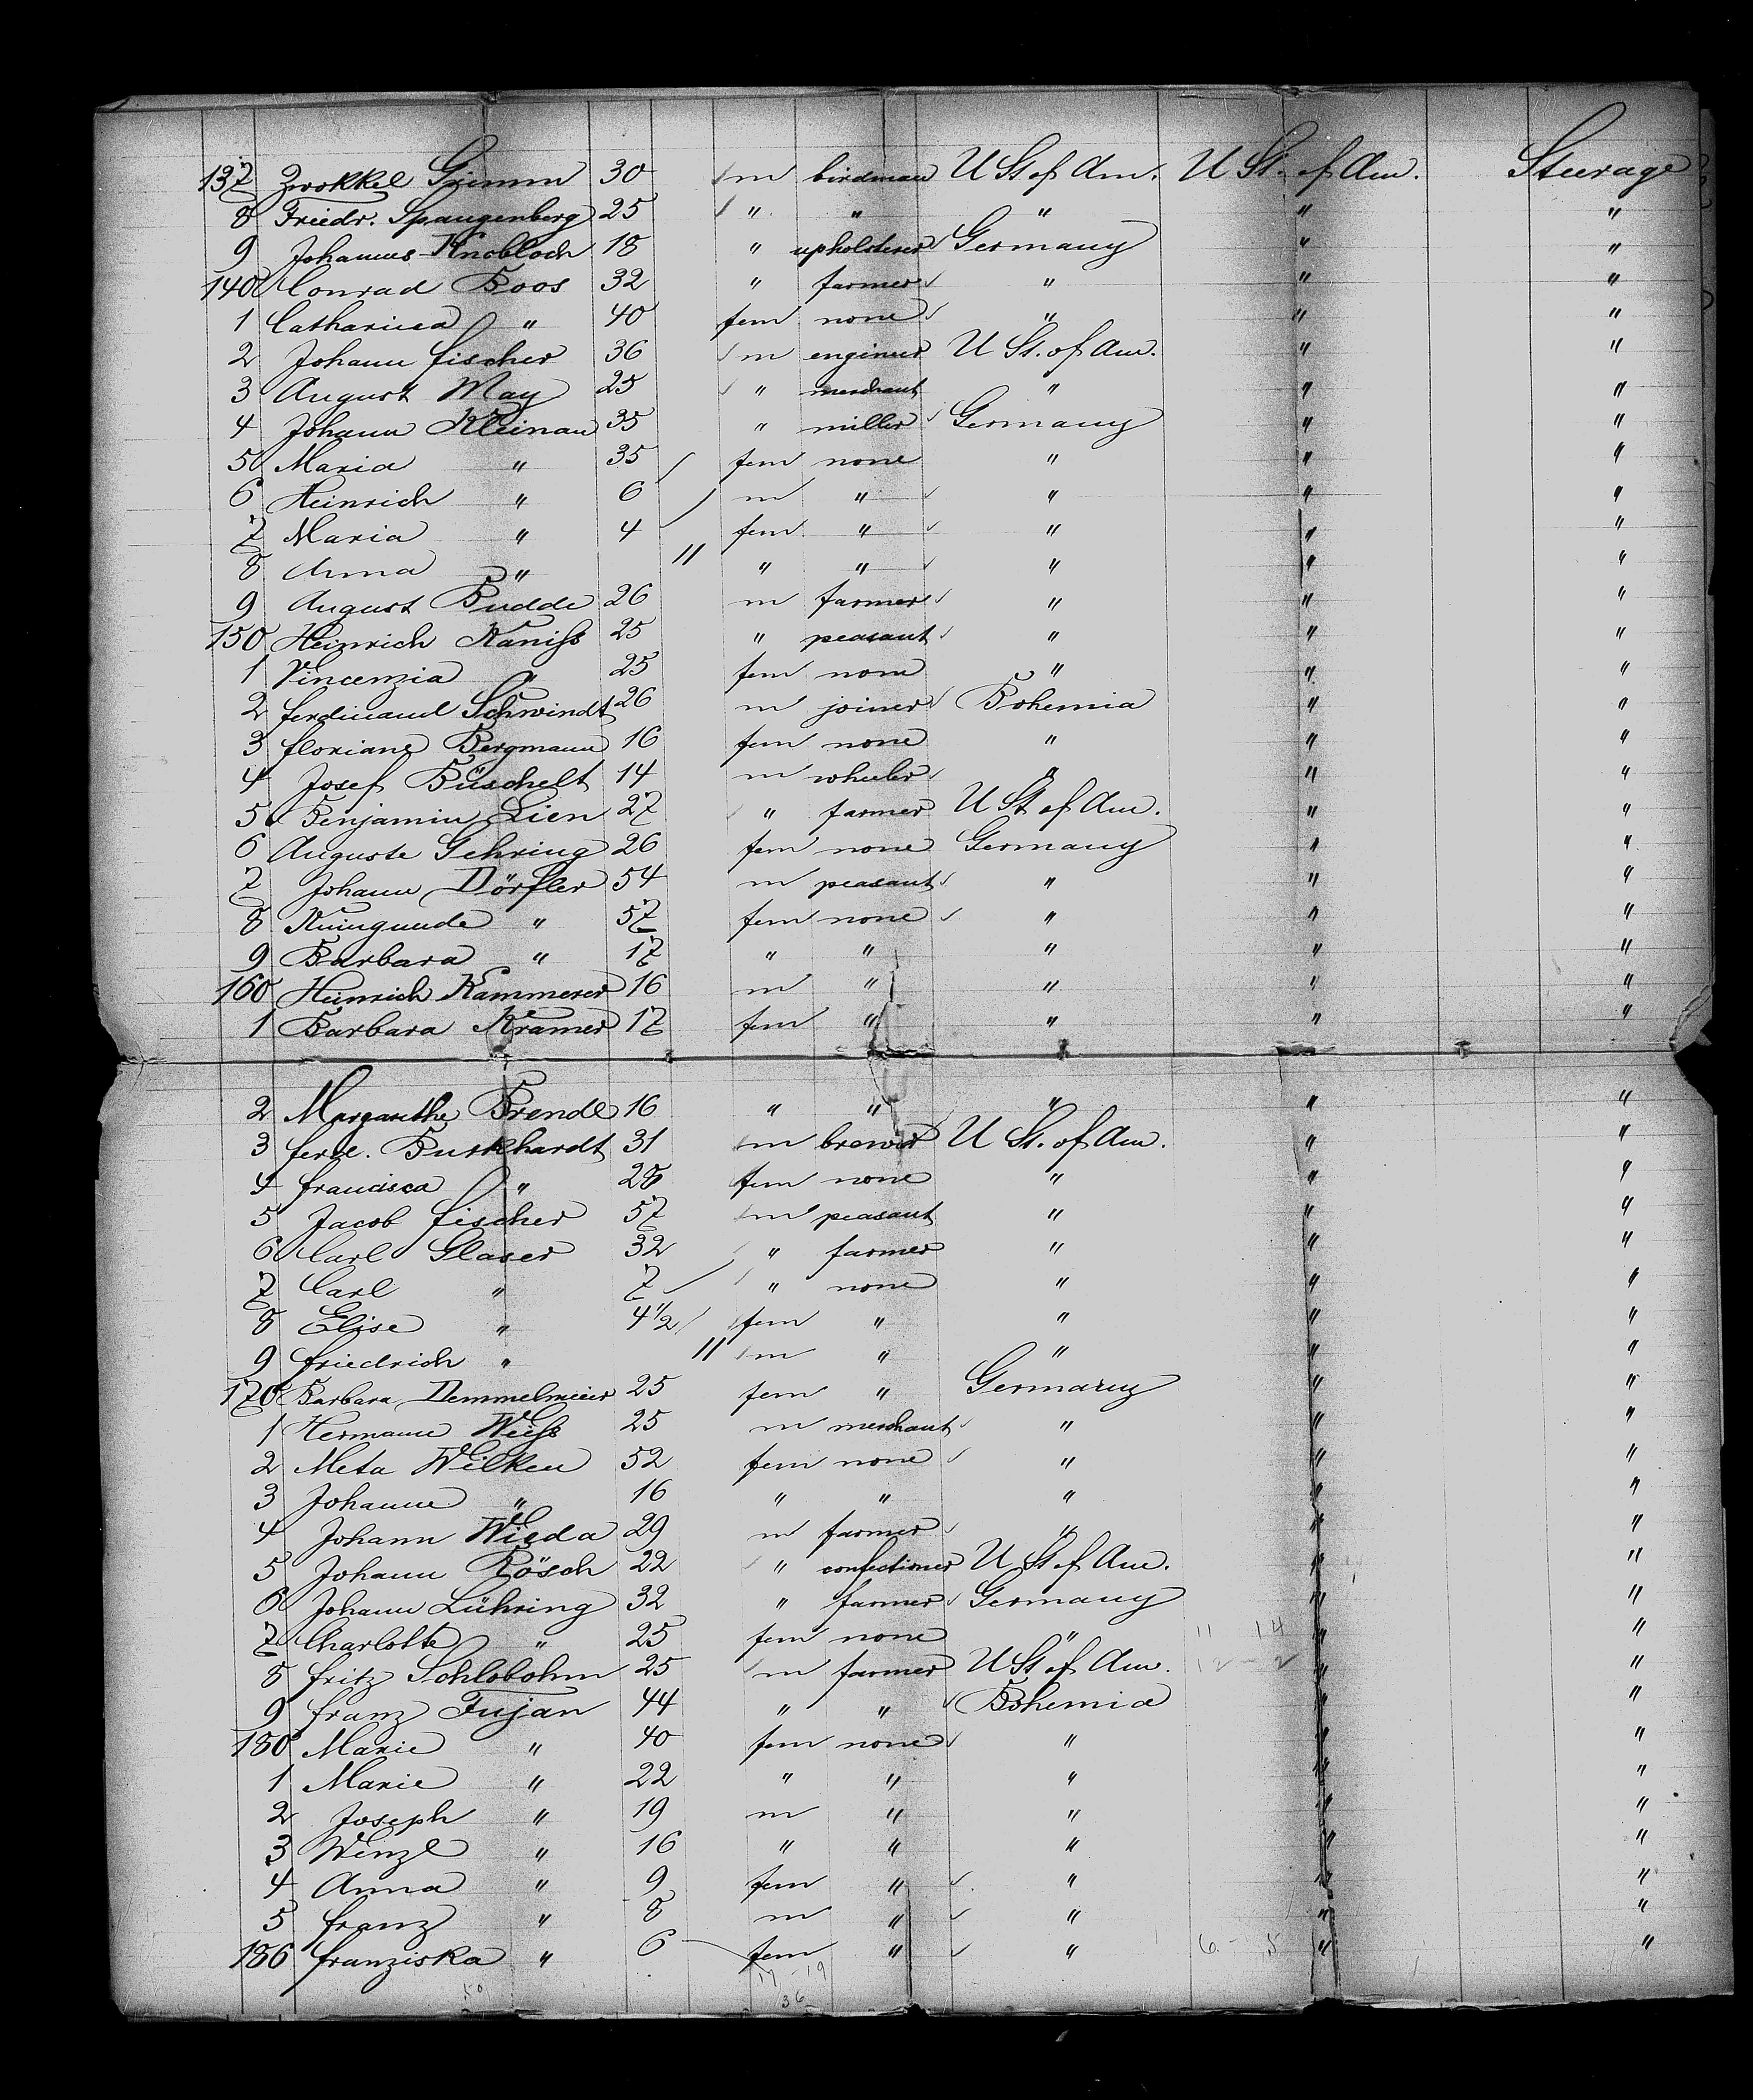 137 Zwokkel Grimm 30 m birdman U St of Am. U St. of Am. Steerage
8 Friedr. Spangenberg 25 " " " " "
9 Johannes Knobloch 18 " upholsterer Germany " "
140 Conrad Boos 32 " farmer " " "
1 Catharina " 40 fem none " " "
2 Johann Fischer 36 m engineer U St. of Am. " "
3 August May 25 " merchant " " "
4 Johann Kleinau 35 " miller Germany " "
5 Maria " 35 fem none " " "
6 Heinrich " 6 m " " " "
7 Maria " 4 fem " " " "
8 Anna " 11 " " " " "
9 August Budde 26 m farmer " " "
150 Heinrich Kaniss 25 " peasant " " "
1 Vincenzia " 25 fem none " " "
2 Ferdinand Schwindt 26 m joiner Bohemia " "
3 Floriane Bergmann 16 fem none " " "
4 Josef Büschelt 14 m wheeler " " "
5 Benjamin Lien 27 " farmer U St of Am. " "
6 Auguste Gehring 26 fem none Germany " "
7 Johann Dörfler 54 m peasant " " "
8 Kunigunde " 57 fem none " " "
9 Barbara " 17 " " " " "
160 Heinrich Kammerer 16 m " " " "
1 Barbara Kramer 17 fem " " " "
2 Margarethe Brendl 16 " " " " "
3 Ferd. Burkhardt 31 m brewer U St. of Am. " "
4 Francisca " 28 fem none " " "
5 Jacob Fischer 57 m peasant " " "
6 Carl Glaser 32 " farmer " " "
7 Carl " 7 " none " " "
8 Elise " 4 1/2 fem " " " "
9 Friedrich " 11 m " " " "
170 Barbara Demmelmeier 25 fem " Germany " "
1 Hermann Weiss 25 m merchant " " "
2 Meta Wilken 52 fem none " " "
3 Johanne " 16 " " " " "
4 Johann Wieda 29 m farmer " " "
5 Johann Rösch 22 " confectioner U St of Am. " "
6 Johann Lühring 32 " farmer Germany " "
7 Charlotte " 25 fem none " 11 14 " "
8 Fritz Schlobohm 25 m farmer U St of Am. 12 - 2 " "
9 Franz Fujan 44 " " Bohemia " "
180 Marie " 40 fem none " " "
1 Marie " 22 " " " " "
2 Joseph " 19 m " " " "
3 Wenzl " 16 " " " " "
4 Anna " 9 fem " " " "
5 Franz " 8 m " " " "
186 Franziska " 6 fem " " 6 - 5 " "
17 - 19
36